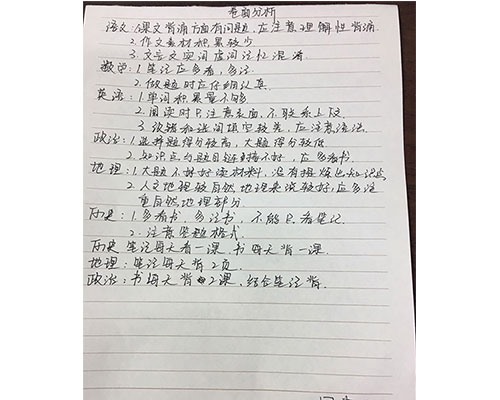 卷面分析
语文:1.课文背诵方面有问题,应注意理解性背诵.
2.作文素材积累较少
3.文言文实词虚词记忆混淆
数学:1.笔记应多看,多记.
2.做题时应仔细认真.
英语:1.单词积累量不够
2.阅读时只注意表面,不联系上下文
3.改错和选词填空较差,应注意语法.
政治:1.选择题得分较高,大题得分较低
2.知识点与题目链接不好,应多看书.
地理:1.大题不好好读材料,没有接触也知识点
2.人文地理较自然地理来说较好,应多注
重自然地理部分
历史:1.多看书,多记书,不能只看笔记
2.注意答题格式.
历史 笔记每天看一课,书每天背一课.
地理:笔记每天背2页.
政治:书每天背2课,结合笔记背.